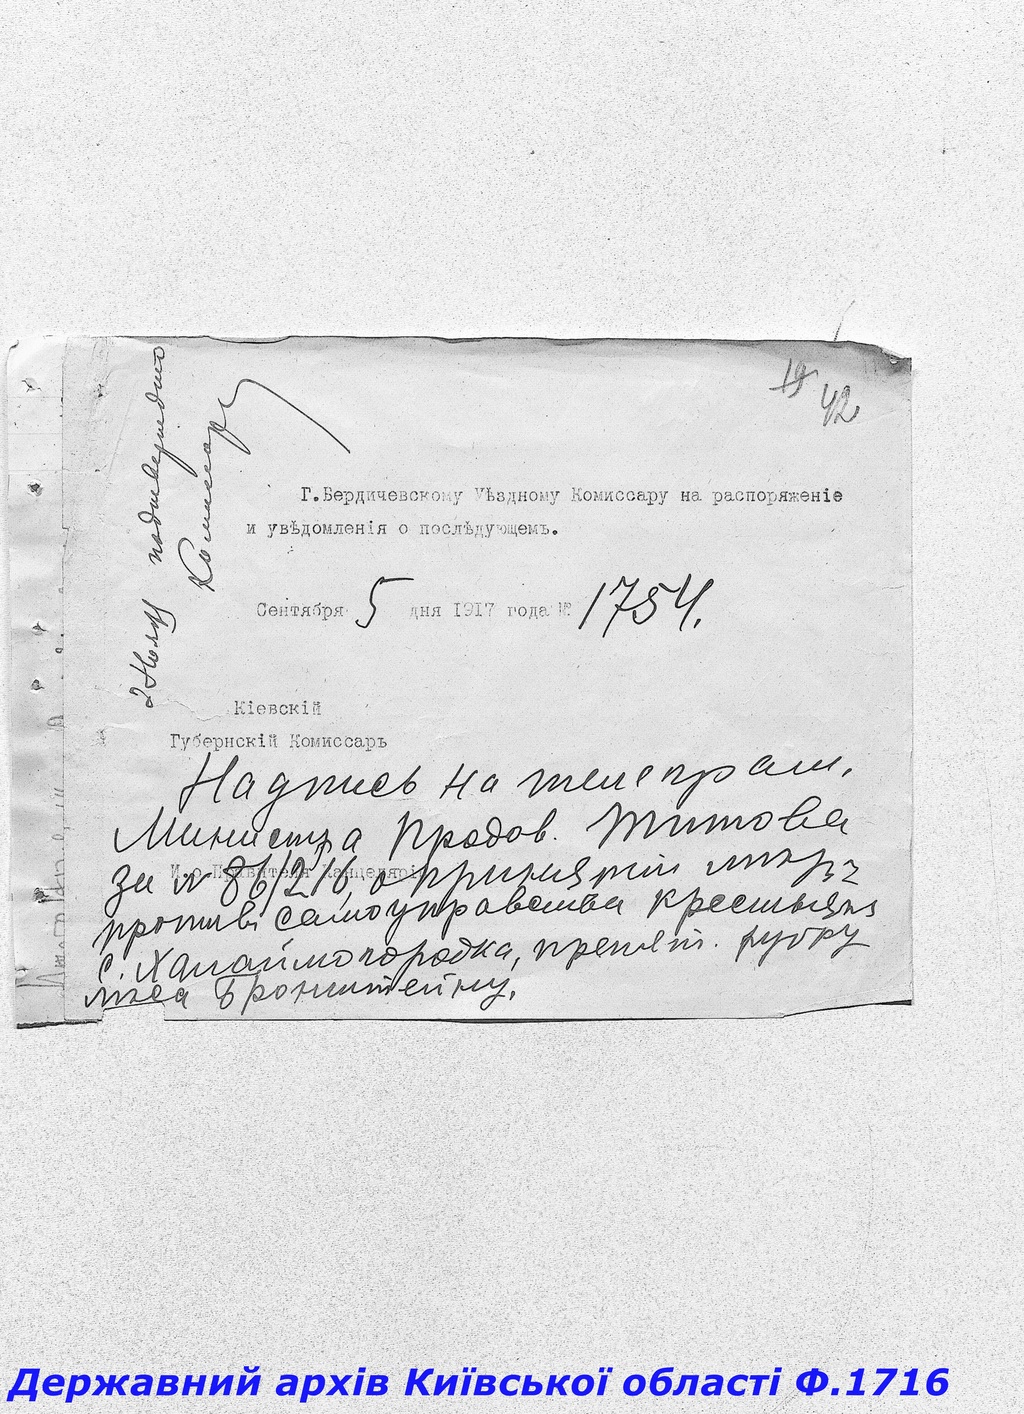 19 42
2 Ноября подтвердить
Комиссару
Г.Бердичевскому Уѣздному Комиссару на распоряженіе
и увѣдомленія о послѣдующемъ.
Сентября 5 дня 1917 года № 1754.
Кіевскій
Губернскій Комиссаръ
Надпись на телеграм.
Министра Продов. Титова
И.о.Правителя Канцеляріи
за № 86/216, о принятіи мѣръ
против самоуправства крестьянъ
с. Халаймогородка, препят. рубку
лѣса Бронштейну.
Державний архів Київської області Ф.1716